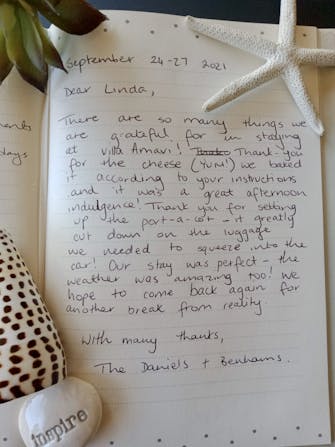 September 24-27 2021
Dear Linda,
There are so many things we
are grateful for in staying
at Villa Amavi! Thank you
for the cheese (YUM!) we baked
it according to your instructions
and it was a great afternoon
indulgence! Thank you for setting
up the port-a-cot - it greatly
cut down on the luggage
we needed to squeeze into the
car! Our stay was perfect - the
weather was amazing too! We
hope to come back again for
another break from reality.
With many thanks,
The Daniels + Benhams.
days
inspire